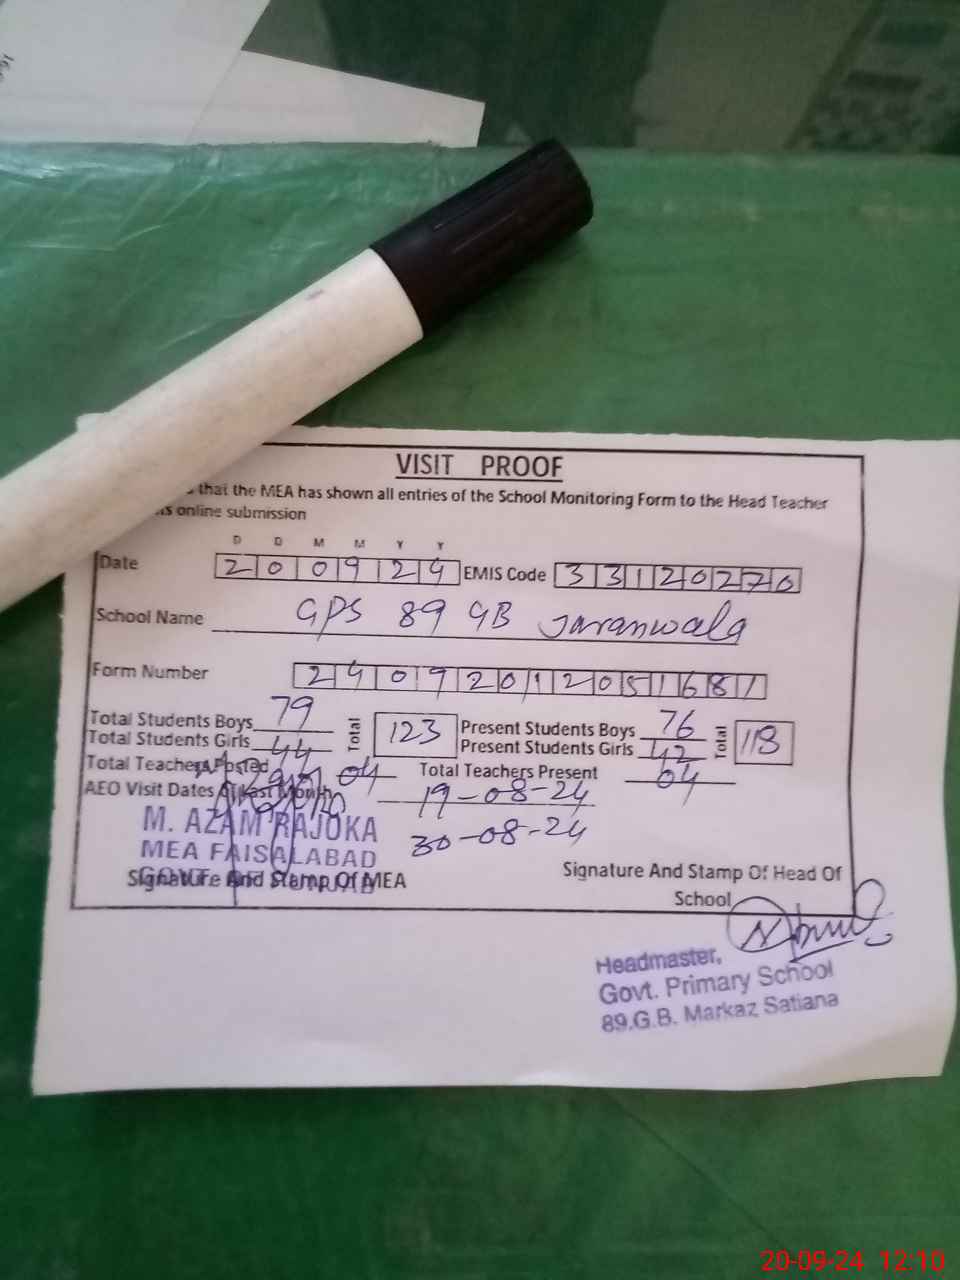 VISIT PROOF
that the MEA has shown all entries of the School Monitoring Form to the Head Teacher
online submission
D D M M Y Y
Date 200924 EMIS Code 33120270
School Name GPS 89 GB Jaranwala
Form Number 24092012051681
Total Students Boys 79 Total 123 Present Students Boys 76 Total 118
Total Students Girls 44 Present Students Girls 42
Total Teachers Posted 04 Total Teachers Present 04
AEO Visit Dates Of Last Month 19-08-24
30-08-24
M. AZAM RAJOKA
MEA FAISALABAD
GOVT. OF PUNJAB
Signature And Stamp Of MEA
Signature And Stamp Of Head Of
School
Headmaster,
Govt. Primary School
89.G.B. Markaz Satiana
20-09-24 12:10